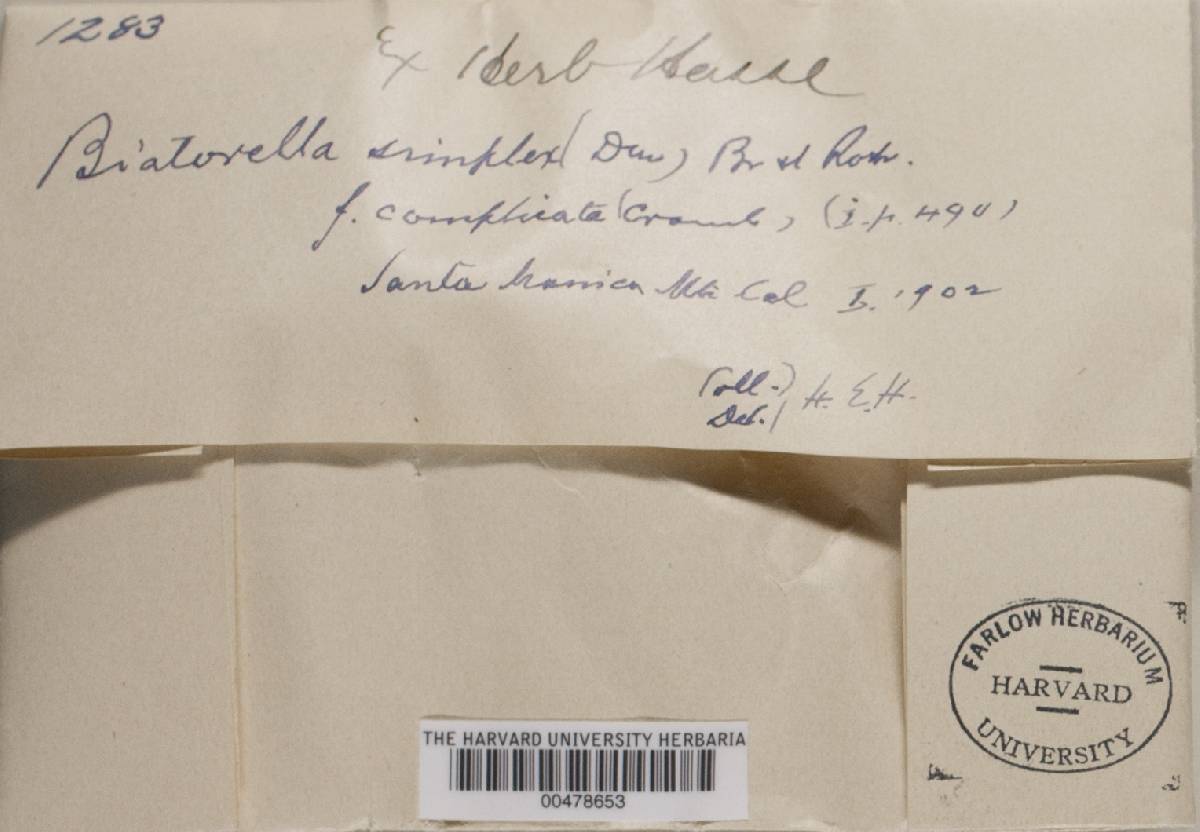 1283
Ex Herb Hasse
Biatorella simplex (Dav) Br et Rostr.
f. complicata (Cromb) (I. p. 490)
Santa Monica Mts Cal I. 1902
Coll.) H. E. H.
Det.)
FARLOW HERBARIUM
HARVARD
UNIVERSITY
THE HARVARD UNIVERSITY HERBARIA
00478653